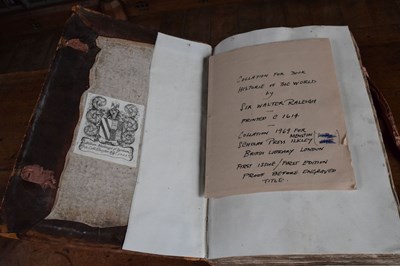 COLLATION FOR YOUR
HISTORIE OF THE WORLD
by
SIR WALTER RALEIGH
—
PRINTED C. 1614
—
COLLATION 1969 FOR
SCHOLAR PRESS ILKLEY
BRITISH LIBRARY LONDON
FIRST ISSUE / FIRST EDITION
PROOF BEFORE ENGRAVED
TITLE.